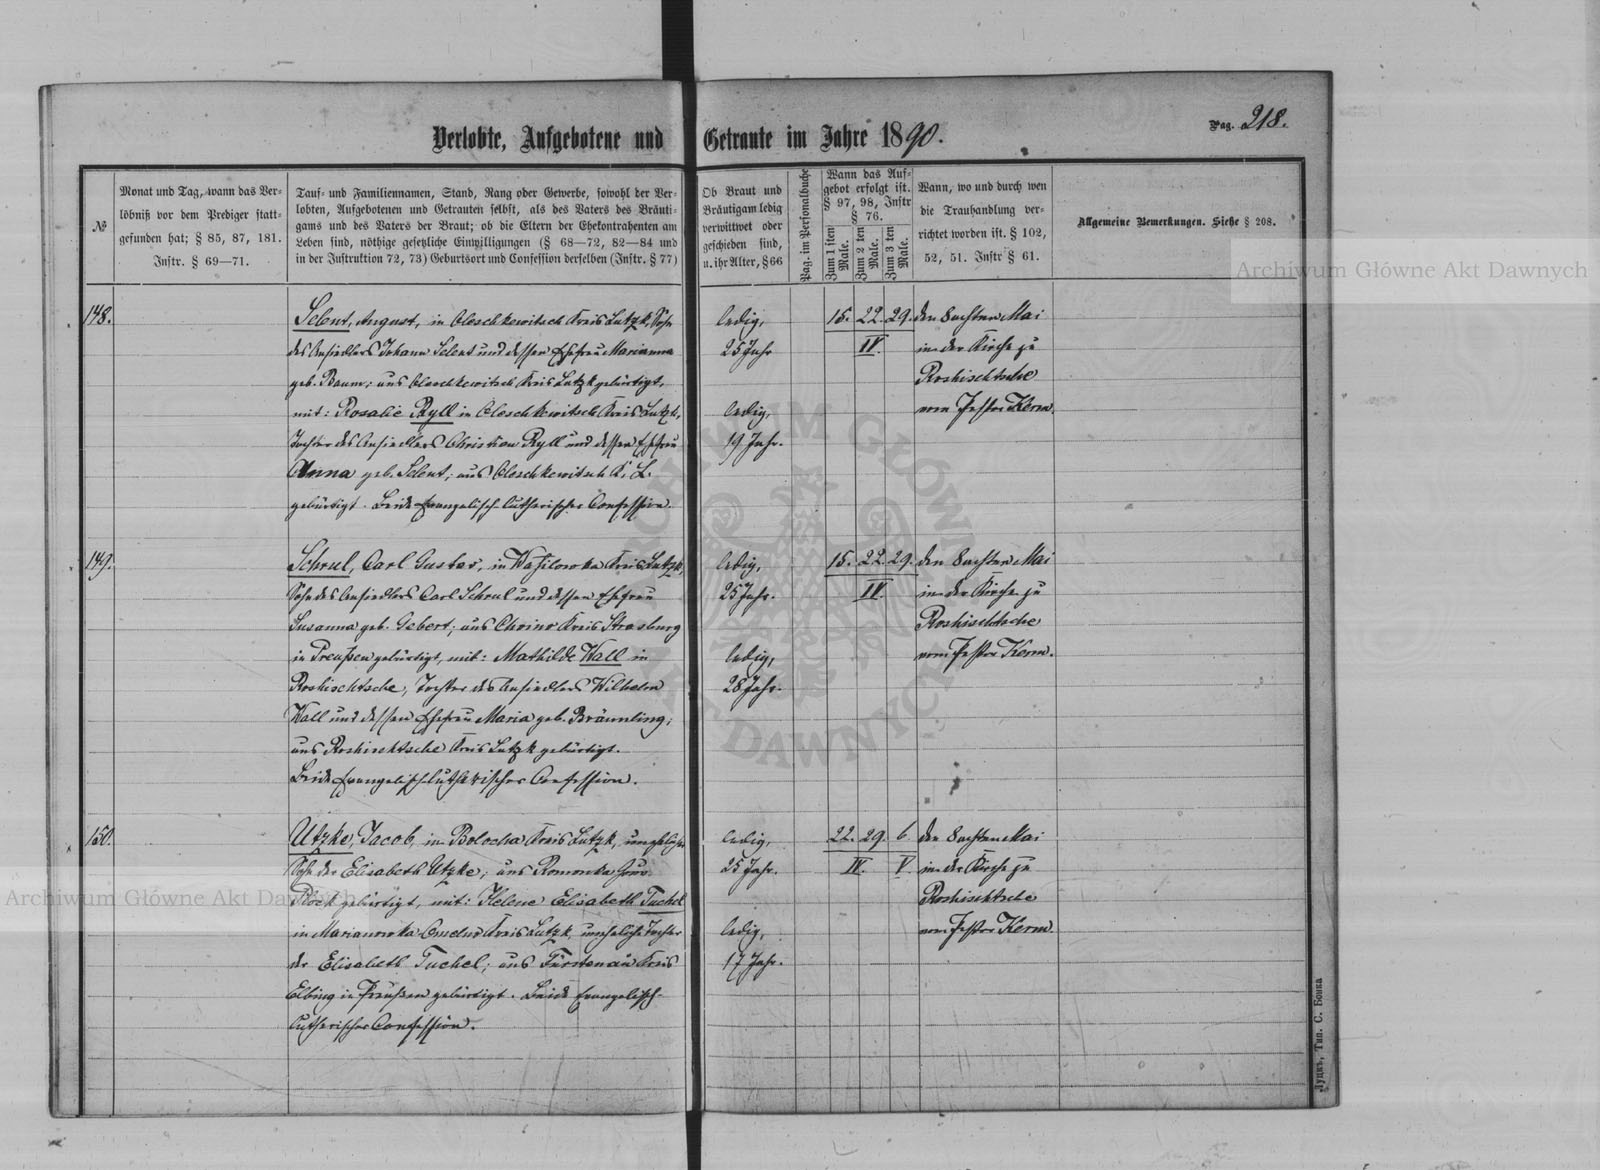 Pag. 218.
Verlobte, Aufgebotene und Getraute im Jahre 1890.
№
Monat und Tag, wann das Ver-
löbniß vor dem Prediger statt-
gefunden hat; § 85, 87, 181.
Instr. § 69—71.
Tauf- und Familiennamen, Stand, Rang oder Gewerbe, sowohl der Ver-
lobten, Aufgebotenen und Getrauten selbst, als des Vaters des Bräuti-
gams und des Vaters der Braut; ob die Eltern der Ehekontrahenten am
Leben sind, nöthige gesetzliche Einwilligungen (§ 68—72, 82—84 und
in der Instruktion 72, 73) Geburtsort und Confession derselben (Instr. § 77)
Ob Braut und
Bräutigam ledig
verwittwet oder
geschieden sind,
u. ihr Alter, § 66
Pag. im Personalbuche
Wann das Auf-
gebot erfolgt ist.
§ 97, 98, Instr
§ 76.
Zum 1 ten
Male.
Zum 2 ten
Male.
Zum 3 ten
Male.
Wann, wo und durch wen
die Trauhandlung ver-
richtet worden ist. § 102,
52, 51. Instr § 61.
Allgemeine Bemerkungen. Siehe § 208.
148.
Selent, August, in Oleschkewitsch Kreis Lutzk, Sohn
des Ansiedlers Johann Selent und dessen Ehefrau Marianna
geb. Baum; aus Oleschkewitsch Kreis Lutzk gebürtigt,
mit: Rosalie Ryll in Oleschkewitsch Kreis Lutzk,
Tochter des Ansiedlers Christian Ryll und dessen Ehefrau
Anna geb. Selent; aus Oleschkewitsch K. L.
gebürtigt. Beide Evangelisch-lutherischer Confession.
ledig,
25 Jahr
ledig,
19 Jahr.
15. 22. 29.
IV.
den sechsten Mai
in der Kirche zu
Roshischtsche
vom Pastor Kerm.
149.
Schrul, Carl Gustav, in Wasilowka Kreis Lutzk,
Sohn des Ansiedlers Carl Schrul und dessen Ehefrau
Susanna geb. Gebert; aus Choino Kreis Strasburg
in Preußen gebürtigt, mit: Mathilde Wall in
Roshischtsche, Tochter des Ansiedlers Wilhelm
Wall und dessen Ehefrau Maria geb. Bräunling;
aus Roshischtsche Kreis Lutzk gebürtigt.
Beide Evangelisch-lutherischer Confession.
ledig,
25 Jahr.
ledig,
28 Jahr.
15. 22. 29.
IV.
den sechsten Mai
in der Kirche zu
Roshischtsche
vom Pastor Kerm.
150.
Utzke, Jacob, in Bolocha Kreis Lutzk, unehelicher
Sohn der Elisabeth Utzke; aus Romonka Gouv.
Plock gebürtigt, mit: Helene Elisabeth Tuchel
in Marianowka Kreis Lutzk, uneheliche Tochter
der Elisabeth Tuchel; aus Fürstenau Kreis
Elbing in Preußen gebürtigt. Beide Evangelisch-
lutherischer Confession.
ledig,
25 Jahr.
ledig,
17 Jahr.
22. 29. 6.
IV. V.
den sechsten Mai
in der Kirche zu
Roshischtsche
vom Pastor Kerm.
Луцкъ, Тип. С. Бонка
Archiwum Główne Akt Dawnych
Archiwum Główne Akt Dawnych
ARCHIWUM GŁÓWNE AKT DAWNYCH